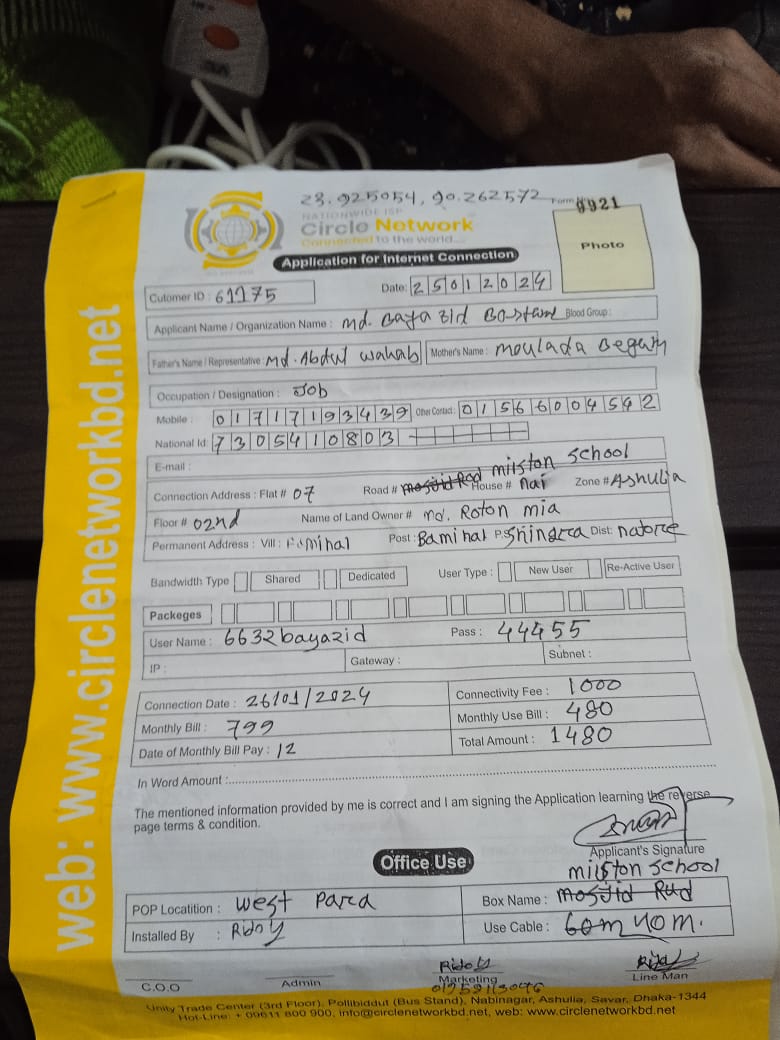 23.925054, 90.262572 Form 9921
NATIONWIDE ISP
Circle Network
Connected to the world...
Photo
Application for Internet Connection
Cutomer ID : 61175 Date: 25012024
Applicant Name / Organization Name : md. Bayazid Bostami Blood Group :
Father's Name / Representative : Md. Abdul wahab Mother's Name : Moulada Begum
Occupation / Designation : Job
Mobile : 01717193439 Other Contact : 01566004542
National Id: 7305410803
E-mail : milston school
Connection Address : Flat # 07 Road # House # nai Zone # Ashulia
Floor # 02nd Name of Land Owner # md. Roton mia
Permanent Address : Vill : Post : Baminal P.S Shingra Dist: natore
Bandwidth Type Shared Dedicated User Type : New User Re-Active User
Packeges
User Name : 6632bayazid Pass : 44455
IP : Gateway : Subnet :
Connection Date : 26/01/2024 Connectivity Fee : 1000
Monthly Bill : 799 Monthly Use Bill : 480
Date of Monthly Bill Pay : 12 Total Amount : 1480
In Word Amount :
The mentioned information provided by me is correct and I am signing the Application learning the reverse
page terms & condition.
Applicant's Signature
Office Use
milston school
POP Locatition : west para Box Name : mosjid Rud
Installed By : Ridoy Use Cable : 40m.
Ridoy
C.O.O Admin Marketing Line Man
Unity Trade Center (3rd Floor), Pollibiddut (Bus Stand), Nabinagar, Ashulia, Savar, Dhaka-1344
Hot-Line: + 09611 800 900, info@circlenetworkbd.net, web: www.circlenetworkbd.net
web: www.circlenetworkbd.net